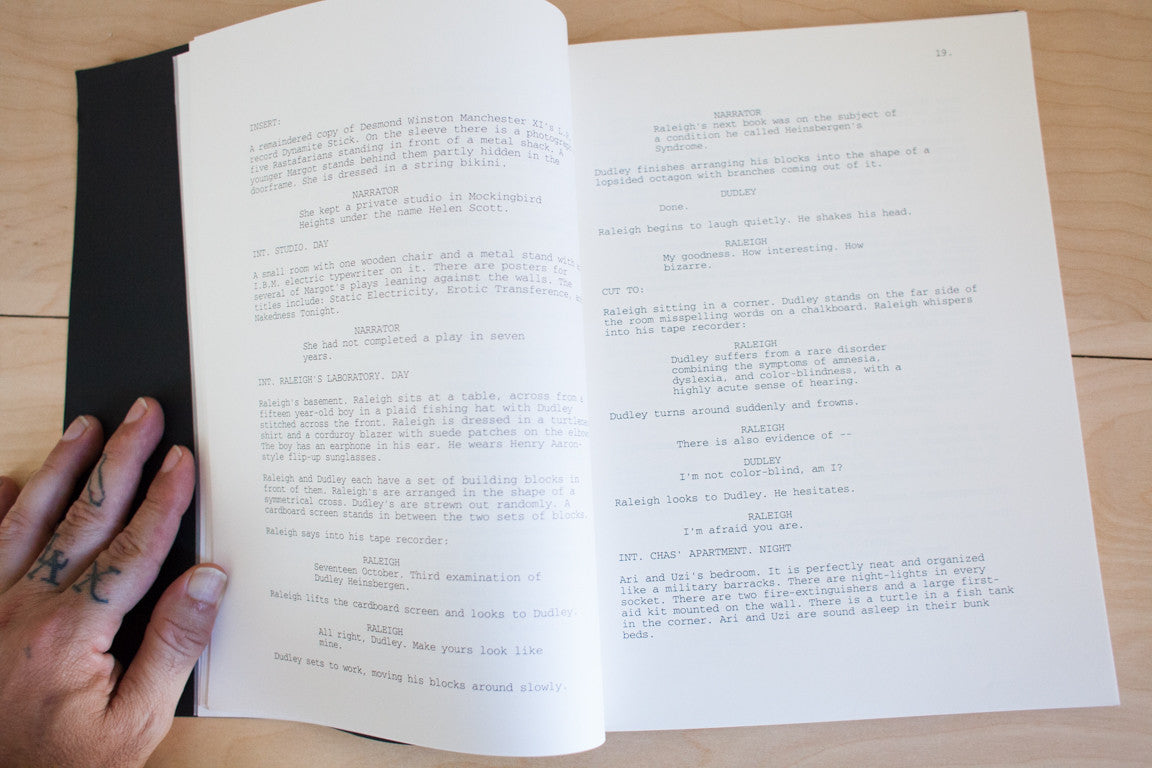 INSERT:
A remaindered copy of Desmond Winston Manchester XI's L.P.
record Dynamite Stick. On the sleeve there is a photograph
five Rastafarians standing in front of a metal shack. A
younger Margot stands behind them partly hidden in the
doorframe. She is dressed in a string bikini.
NARRATOR
She kept a private studio in Mockingbird
Heights under the name Helen Scott.
INT. STUDIO. DAY
A small room with one wooden chair and a metal stand with
I.B.M. electric typewriter on it. There are posters for
several of Margot's plays leaning against the walls. The
titles include: Static Electricity, Erotic Transference,
Nakedness Tonight.
NARRATOR
She had not completed a play in seven
years.
INT. RALEIGH'S LABORATORY. DAY
Raleigh's basement. Raleigh sits at a table, across from a
fifteen year-old boy in a plaid fishing hat with Dudley
stitched across the front. Raleigh is dressed in a
shirt and a corduroy blazer with suede patches on the
The boy has an earphone in his ear. He wears Henry Aaron-
style flip-up sunglasses.
Raleigh and Dudley each have a set of building blocks in
front of them. Raleigh's are arranged in the shape of a
symmetrical cross. Dudley's are strewn out randomly. A
cardboard screen stands in between the two sets of blocks.
Raleigh says into his tape recorder:
RALEIGH
Seventeen October. Third examination of
Dudley Heinsbergen.
Raleigh lifts the cardboard screen and looks to Dudley.
RALEIGH
All right, Dudley. Make yours look like
mine.
Dudley sets to work, moving his blocks around slowly.
19.
NARRATOR
Raleigh's next book was on the subject of
a condition he called Heinsbergen's
Syndrome.
Dudley finishes arranging his blocks into the shape of a
lopsided octagon with branches coming out of it.
DUDLEY
Done.
Raleigh begins to laugh quietly. He shakes his head.
RALEIGH
My goodness. How interesting. How
bizarre.
CUT TO:
Raleigh sitting in a corner. Dudley stands on the far side of
the room misspelling words on a chalkboard. Raleigh whispers
into his tape recorder:
RALEIGH
Dudley suffers from a rare disorder
combining the symptoms of amnesia,
dyslexia, and color-blindness, with a
highly acute sense of hearing.
Dudley turns around suddenly and frowns.
RALEIGH
There is also evidence of --
DUDLEY
I'm not color-blind, am I?
Raleigh looks to Dudley. He hesitates.
RALEIGH
I'm afraid you are.
INT. CHAS' APARTMENT. NIGHT
Ari and Uzi's bedroom. It is perfectly neat and organized
like a military barracks. There are night-lights in every
socket. There are two fire-extinguishers and a large first-
aid kit mounted on the wall. There is a turtle in a fish tank
in the corner. Ari and Uzi are sound asleep in their bunk
beds.